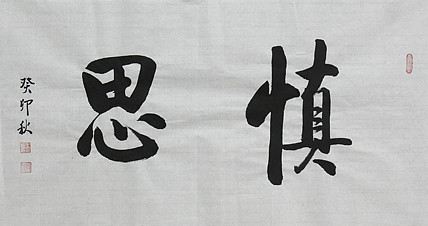 慎思
癸卯秋